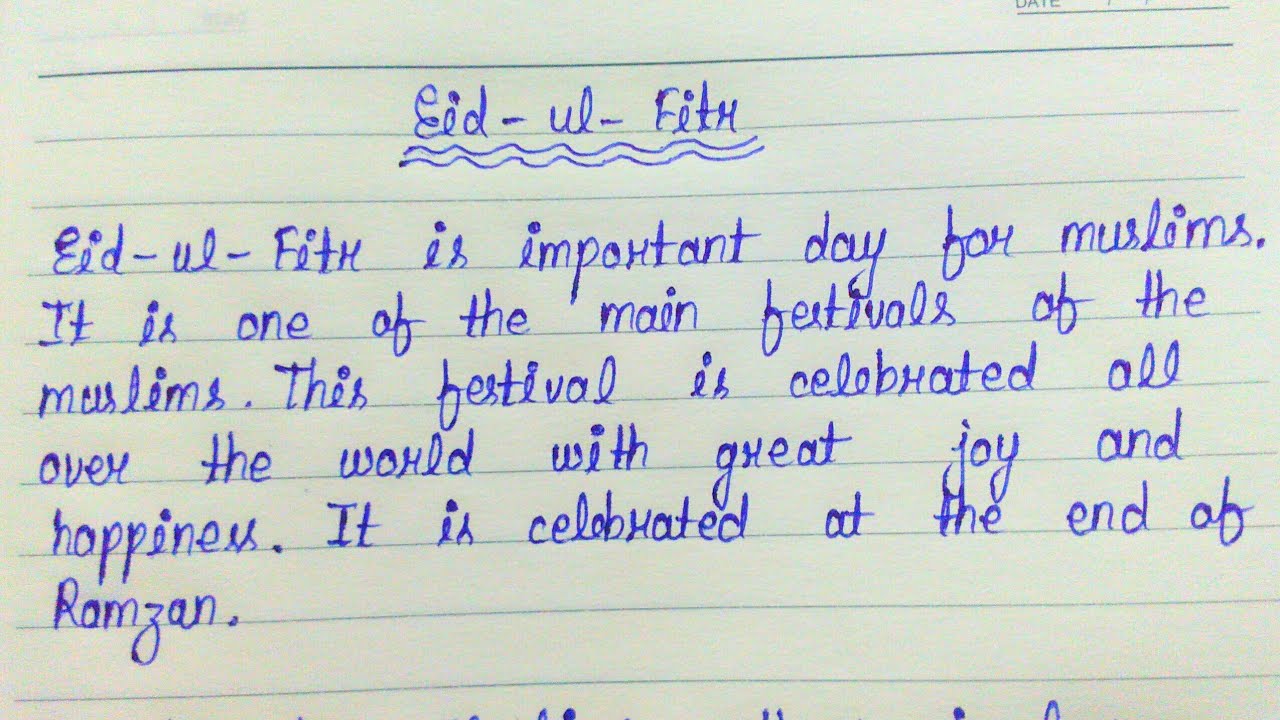 DATE
Eid-ul-Fitr
Eid-ul-Fitr is important day for muslims.
It is one of the main festivals of the
muslims. This festival is celebrated all
over the world with great joy and
happiness. It is celebrated at the end of
Ramzan.